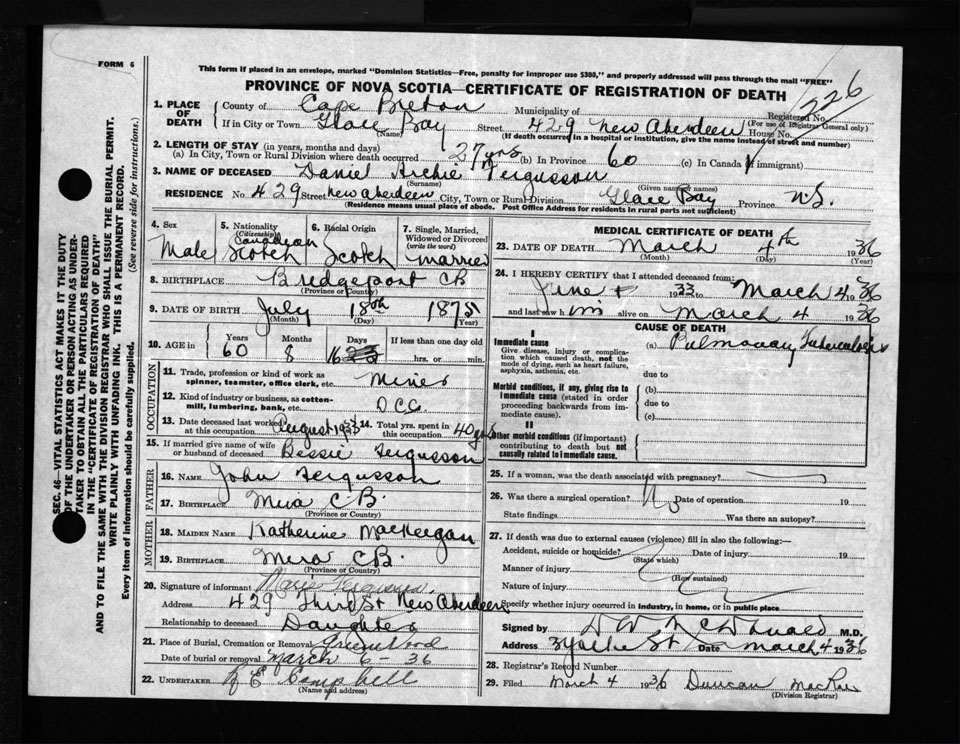 FORM 6
This form if placed in an envelope, marked "Dominion Statistics—Free, penalty for improper use $300," and properly addressed will pass through the mail "FREE"
PROVINCE OF NOVA SCOTIA—CERTIFICATE OF REGISTRATION OF DEATH
226
Registered No.
(For use of Registrar General only)
1. PLACE OF DEATH
County of Cape Breton Municipality of
If in City or Town Glace Bay Street 429 New Aberdeen House No.
(Name) (If death occurred in a hospital or institution, give the name instead of street and number)
2. LENGTH OF STAY (in years, months and days)
(a) In City, Town or Rural Division where death occurred 27 yrs (b) In Province 60 (c) In Canada (if immigrant)
3. NAME OF DECEASED Daniel Archie Fergusson
(Surname) (Given name or names)
RESIDENCE No. 429 Street New Aberdeen City, Town or Rural Division Glace Bay Province N.S.
(Residence means usual place of abode. Post Office Address for residents in rural parts not sufficient)
4. Sex Male
5. Nationality (Citizenship) Canadian Scotch
6. Racial Origin Scotch
7. Single, Married, Widowed or Divorced (write the word) married
8. BIRTHPLACE Bridgeport CB
(Province or Country)
9. DATE OF BIRTH July 18th 1875
(Month) (Day) (Year)
10. AGE in Years 60 Months 8 Days 16 If less than one day old hrs. or min.
OCCUPATION
11. Trade, profession or kind of work as spinner, teamster, office clerk, etc. Miner
12. Kind of industry or business, as cotton-mill, lumbering, bank, etc. D C C
13. Date deceased last worked at this occupation August 1933
14. Total yrs. spent in this occupation 40 yrs
15. If married give name of wife or husband of deceased Bessie Fergusson
FATHER
16. NAME John Fergusson
17. BIRTHPLACE Mira C B.
(Province or Country)
MOTHER
18. MAIDEN NAME Katherine MacKeegan
19. BIRTHPLACE Mira CB.
(Province or Country)
20. Signature of informant Marie Fergusson
Address 429 Third St New Aberdeen
Relationship to deceased Daughter
21. Place of Burial, Cremation or Removal Greenwood
Date of burial or removal March 6 - 36
22. UNDERTAKER Campbell
(Name and address)
MEDICAL CERTIFICATE OF DEATH
23. DATE OF DEATH March 4th 1936
(Month) (Day) (Year)
24. I HEREBY CERTIFY that I attended deceased from:
June 1933 to March 4 1936
and last saw him alive on March 4 1936
CAUSE OF DEATH
I
Immediate cause
Give disease, injury or complication which caused death, not the mode of dying, such as heart failure, asphyxia, asthenia, etc.
(a) Pulmonary Tuberculosis
due to
Morbid conditions, if any, giving rise to immediate cause (stated in order proceeding backwards from immediate cause).
(b)
due to
(c)
II
Other morbid conditions (if important) contributing to death but not causally related to immediate cause.
25. If a woman, was the death associated with pregnancy?
26. Was there a surgical operation? No Date of operation 19
State findings Was there an autopsy?
27. If death was due to external causes (violence) fill in also the following:—
Accident, suicide or homicide? Date of injury 19
(State which)
Manner of injury
(How sustained)
Nature of injury
Specify whether injury occurred in industry, in home, or in public place
Signed by McDonald M.D.
Address St Date March 4 1936
28. Registrar's Record Number
29. Filed March 4 1936 Duncan MacRae
(Division Registrar)
SEC. 46—VITAL STATISTICS ACT MAKES IT THE DUTY
OF THE UNDERTAKER OR PERSON ACTING AS UNDER-
TAKER TO OBTAIN ALL THE PARTICULARS REQUIRED
IN THE "CERTIFICATE OF REGISTRATION OF DEATH"
AND TO FILE THE SAME WITH THE DIVISION REGISTRAR WHO SHALL ISSUE THE BURIAL PERMIT.
WRITE PLAINLY WITH UNFADING INK. THIS IS A PERMANENT RECORD.
Every item of information should be carefully supplied. (See reverse side for instructions.)